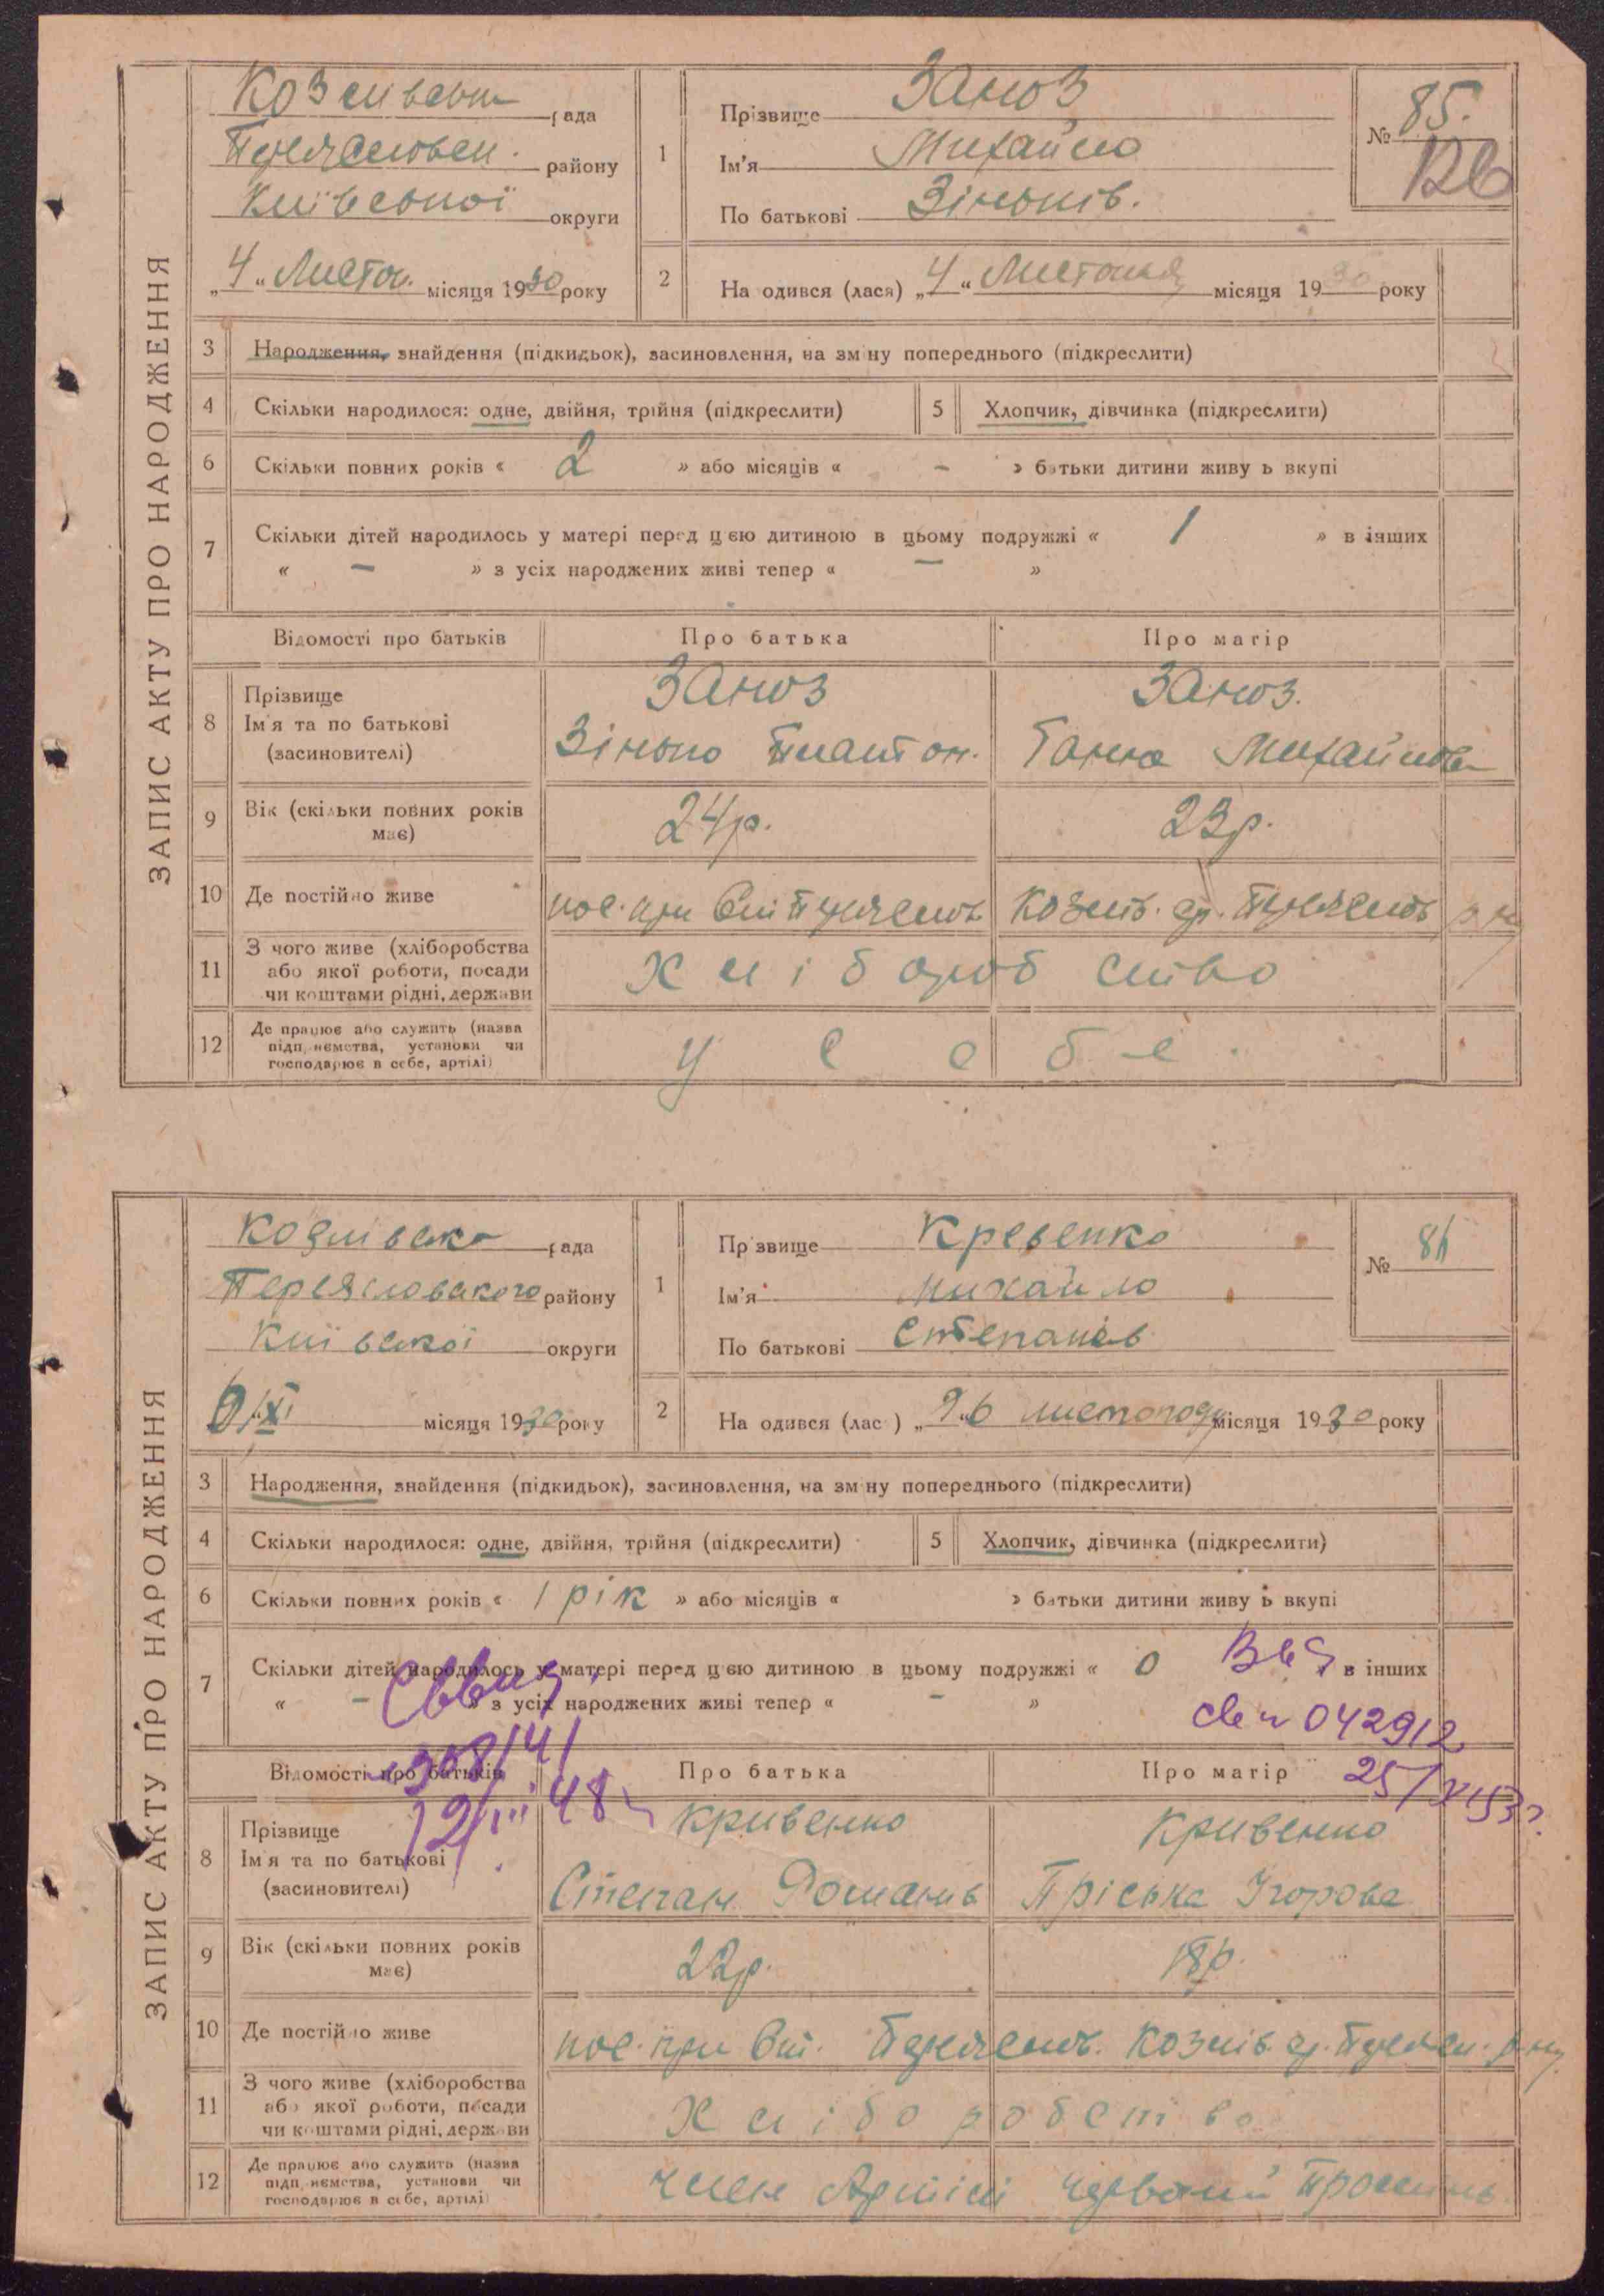 ЗАПИС АКТУ ПРО НАРОДЖЕННЯ
рада
району
Київської округи
„4“ Листоп. місяця 1930 року
1
Прізвище Занюз
Ім'я Михайло
По батькові Зіньків.
№ 85.
2
На одився (лася) „4“ Листопад місяця 1930 року
3 Народження, знайдення (підкидьок), засиновлення, на зміну попереднього (підкреслити)
4 Скільки народилося: одне, двійня, трійня (підкреслити)
5 Хлопчик, дівчинка (підкреслити)
6 Скільки повних років « 2 » або місяців « - » батьки дитини живу ь вкупі
7 Скільки дітей народилось у матері перед цією дитиною в цьому подружжі « 1 » в інших
« - » з усіх народжених живі тепер « - »
Відомості про батьків Про батька Про матір
8 Прізвище
Ім'я та по батькові
(засиновителі)
Занюз
Зінько Платон.
Занюз.
Ганна Михайлов
9 Вік (скільки повних років має) 24р. 23р.
10 Де постійно живе
11 З чого живе (хліборобства
або якої роботи, посади
чи коштами рідні, держави
Хліборобство
12 Де працює або служить (назва
підприємства, установи чи
господарює в себе, артілі)
у себе.
ЗАПИС АКТУ ПРО НАРОДЖЕННЯ
Козлівська рада
Переяславського району
Київської округи
місяця 1930 року
1
Прізвище Кревенко
Ім'я Михайло
По батькові Степанів
№ 86
2
На одився (лас ) листоподу місяця 1930 року
3 Народження, знайдення (підкидьок), засиновлення, на зміну попереднього (підкреслити)
4 Скільки народилося: одне, двійня, трійня (підкреслити)
5 Хлопчик, дівчинка (підкреслити)
6 Скільки повних років « 1 рік » або місяців « » батьки дитини живу ь вкупі
7 Скільки дітей народилось у матері перед цією дитиною в цьому подружжі « 0 » в інших
« - » з усіх народжених живі тепер « - »
042912
Відомості про батьків Про батька Про матір
8 Прізвище
Ім'я та по батькові
(засиновителі)
Кривенко
Степан Романів
Кривенко
Пріська Ігорова
9 Вік (скільки повних років має) 22р. 18р.
10 Де постійно живе
11 З чого живе (хліборобства
або якої роботи, посади
чи коштами рідні, держави
Хліборобство
12 Де працює або служить (назва
підприємства, установи чи
господарює в себе, артілі)
член Артілі Червоний Промінь